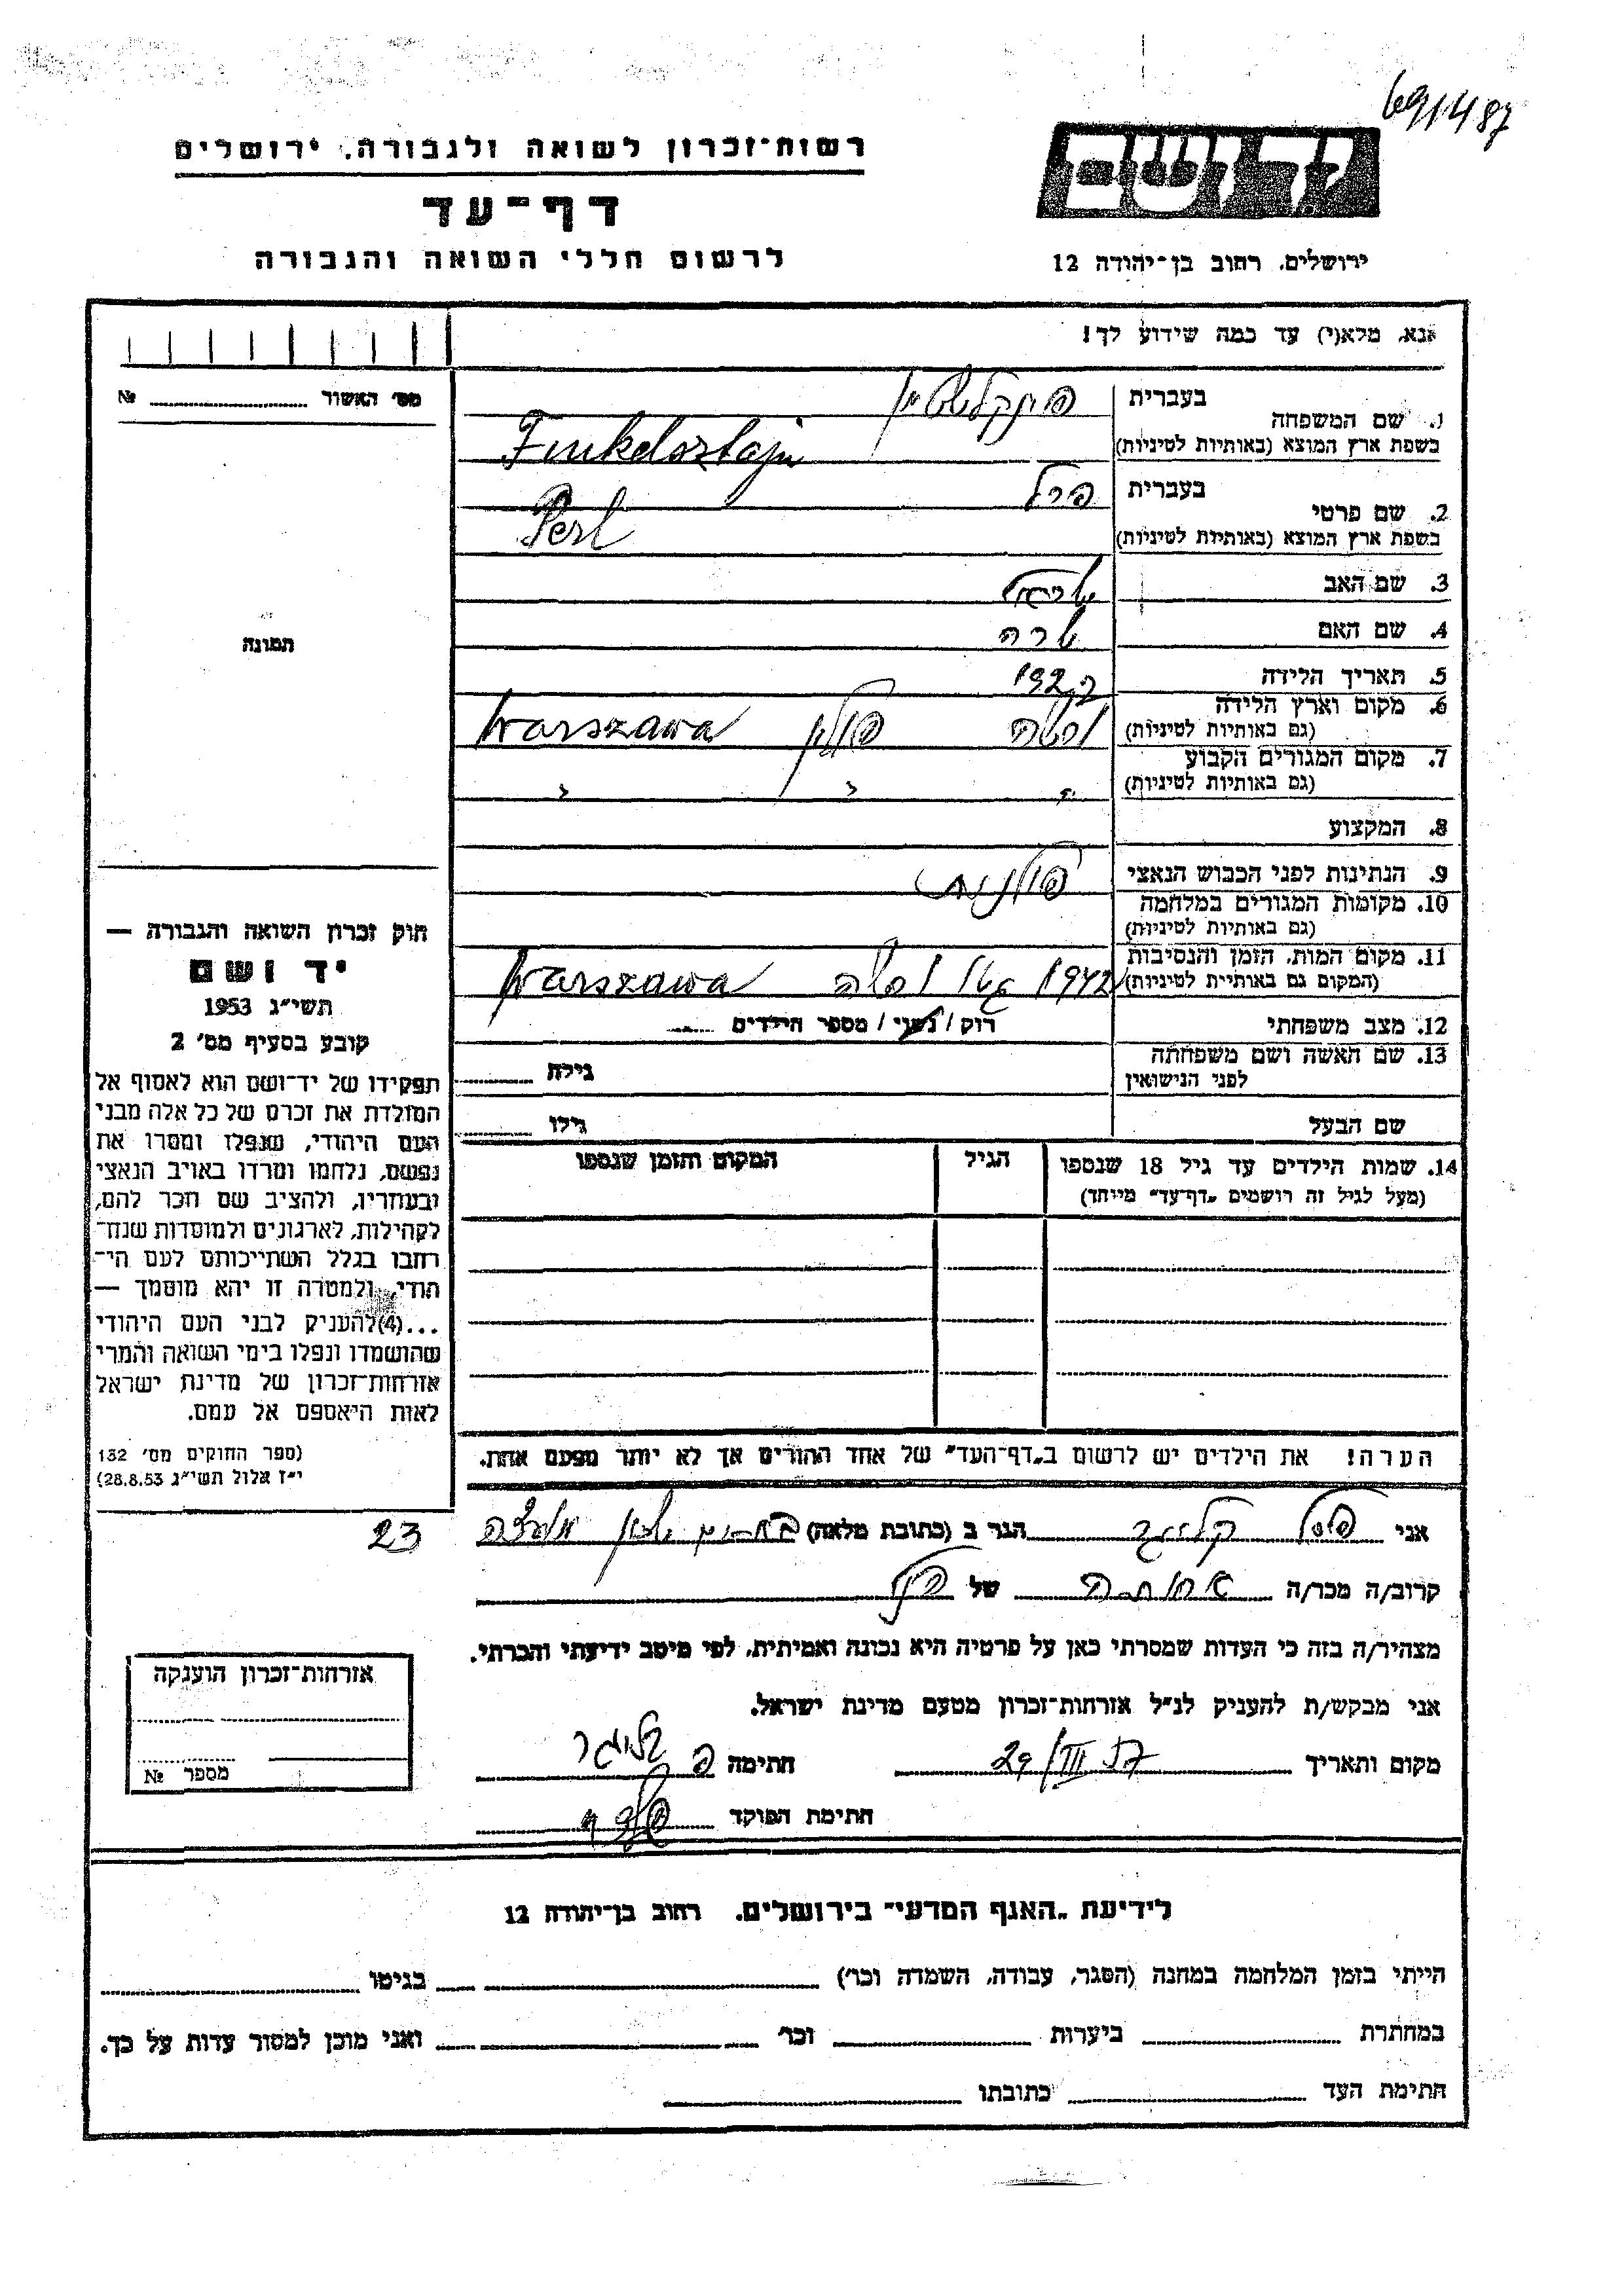 691487
רשות־זכרון לשואה ולגבורה, ירושלים
דף־עד
לרשום חללי השואה והגבורה
יד ושם
ירושלים, רחוב בן־יהודה 12
אנא, מלא(י) עד כמה שידוע לך!
מס׳ האשור № 
1. שם המשפחה
בעברית פינקלשטיין
בשפת ארץ המוצא (באותיות לטיניות) Finkelsztajn
2. שם פרטי
בעברית פרל
בשפת ארץ המוצא (באותיות לטיניות) Perl
3. שם האב ישראל
4. שם האם שרה
5. תאריך הלידה
6. מקום וארץ הלידה (גם באותיות לטיניות) ורשה פולין Warszawa
7. מקום המגורים הקבוע (גם באותיות לטיניות) " " "
8. המקצוע
9. הנתינות לפני הכבוש הנאצי פולנית
10. מקומות המגורים במלחמה (גם באותיות לטיניות)
11. מקום המות, הזמן והנסיבות (המקום גם באותיות לטיניות) 1942 גטו ורשה Warszawa
12. מצב משפחתי רוק / נשוי / מספר הילדים
13. שם האשה ושם משפחתה לפני הנישואין גילה
שם הבעל גילו
14. שמות הילדים עד גיל 18 שנספו הגיל המקום והזמן שנספו
(מעל לגיל זה רושמים „דף־עד״ מייחד)
הערה! את הילדים יש לרשום ב„דף־העד״ של אחד ההורים אך לא יותר מפעם אחת.
תמונה
חוק זכרון השואה והגבורה —
יד ושם
תשי״ג 1953
קובע בסעיף מס׳ 2
תפקידו של יד־ושם הוא לאסוף אל
המולדת את זכרם של כל אלה מבני
העם היהודי, שנפלו ומסרו את
נפשם, נלחמו ומרדו באויב הנאצי
ובעוזריו, ולהציב שם וזכר להם,
לקהילות, לארגונים ולמוסדות שנח־
רבו בגלל השתייכותם לעם הי־
הודי, ולמטרה זו יהא מוסמך —
...(4) להעניק לבני העם היהודי
שהושמדו ונפלו בימי השואה והמרי
אזרחות־זכרון של מדינת ישראל
לאות היאספם אל עמם.
(ספר החוקים מס׳ 132
י״ז אלול תשי״ג 28.8.53)
אני הגר ב (כתובת מלאה) 23
קרוב/ה מכר/ה אחותה של פרל
מצהיר/ה בזה כי העדות שמסרתי כאן על פרטיה היא נכונה ואמיתית, לפי מיטב ידיעתי והכרתי.
אני מבקש/ת להעניק לנ״ל אזרחות־זכרון מטעם מדינת ישראל.
מקום ותאריך 29/III חתימה
חתימת הפוקד
אזרחות־זכרון הוענקה
מספר №
לידיעת „האגף המדעי״ בירושלים, רחוב בן־יהודה 12
הייתי בזמן המלחמה במחנה (הסגר, עבודה, השמדה וכו׳) בגיטו
במחתרת ביערות וכו׳ ואני מוכן למסור עדות על כך.
חתימת העד כתובתו